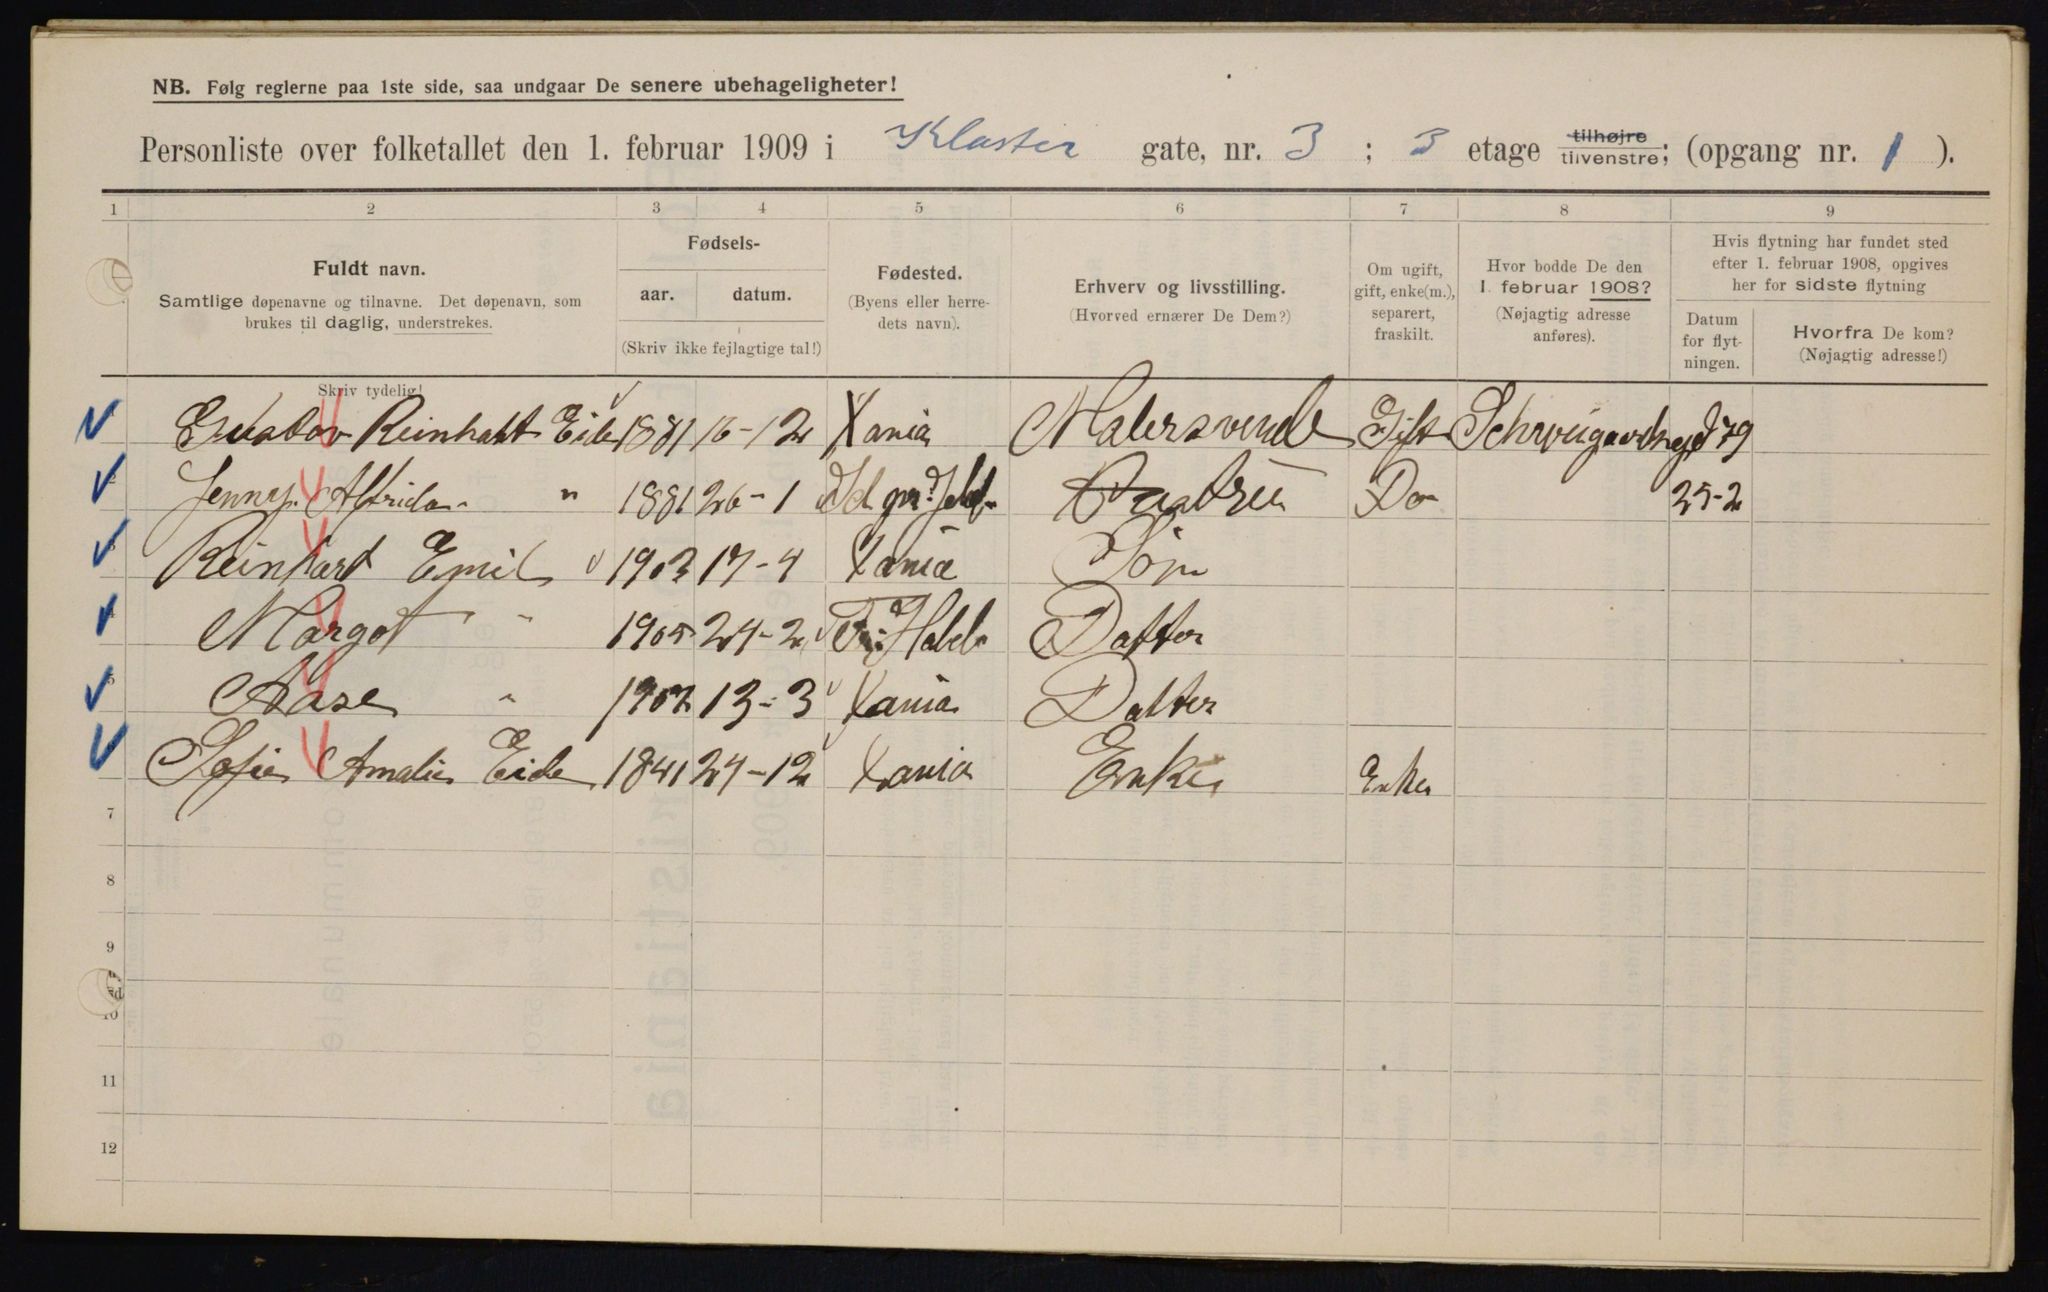 NB. Følg reglerne paa 1ste side, saa undgaar De senere ubehageligheter!
Personliste over folketallet den 1. februar 1909 i Kloster gate, nr. 3 ; 3 etage tilhøjre tilvenstre; (opgang nr. 1 ).
1 2 3 4 5 6 7 8 9
Fuldt navn.
Samtlige døpenavne og tilnavne. Det døpenavn, som
brukes til daglig, understrekes.
Fødsels-
aar. datum.
(Skriv ikke fejlagtige tal!)
Fødested.
(Byens eller herre-
dets navn).
Erhverv og livsstilling.
(Hvorved ernærer De Dem?)
Om ugift,
gift, enke(m.),
separert,
fraskilt.
Hvor bodde De den
1. februar 1908?
(Nøjagtig adresse
anføres).
Hvis flytning har fundet sted
efter 1. februar 1908, opgives
her for sidste flytning
Datum
for flyt-
ningen.
Hvorfra De kom?
(Nøjagtig adresse!)
Skriv tydelig!
Gustav Reinhart Eide 1881 16-12 Xania Malersvend Gift Schweigaardsgd 79
Jenny Alfrida " 1881 26-1 Id pr. Hustru Do 25-2
Reinhart Emil 1903 17-4 Xania Søn
Margot " 1905 24-2 Datter
5 Aase " 1907 13-3 Xania Datter
Sofie Amalie Eide 1841 24-12 Xania Enke Enke
7
8
9
10
11
12